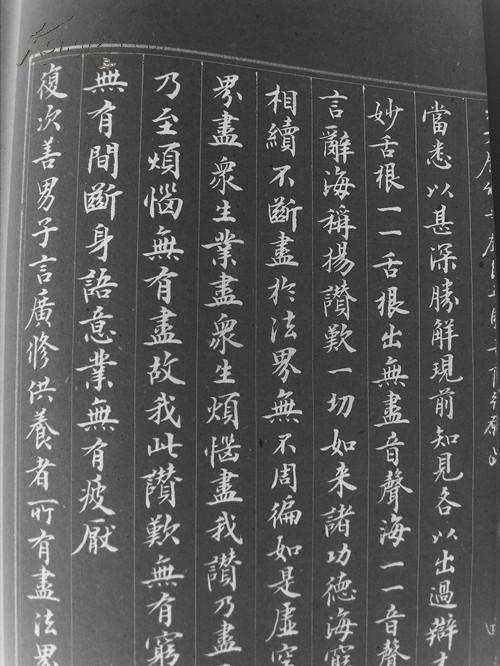 當悉以甚深勝解現前知見各以出過辯
妙舌根一一舌根出無盡音聲海一一音聲
言辭海稱揚讚歎一切如来諸功德海窮
相續不斷盡於法界無不周徧如是虛空
界盡衆生業盡衆生煩惱盡我讚乃盡
乃至煩惱無有盡故我此讚歎無有窮
無有間斷身語意業無有疲厭
復次善男子言廣修供養者所有盡法界